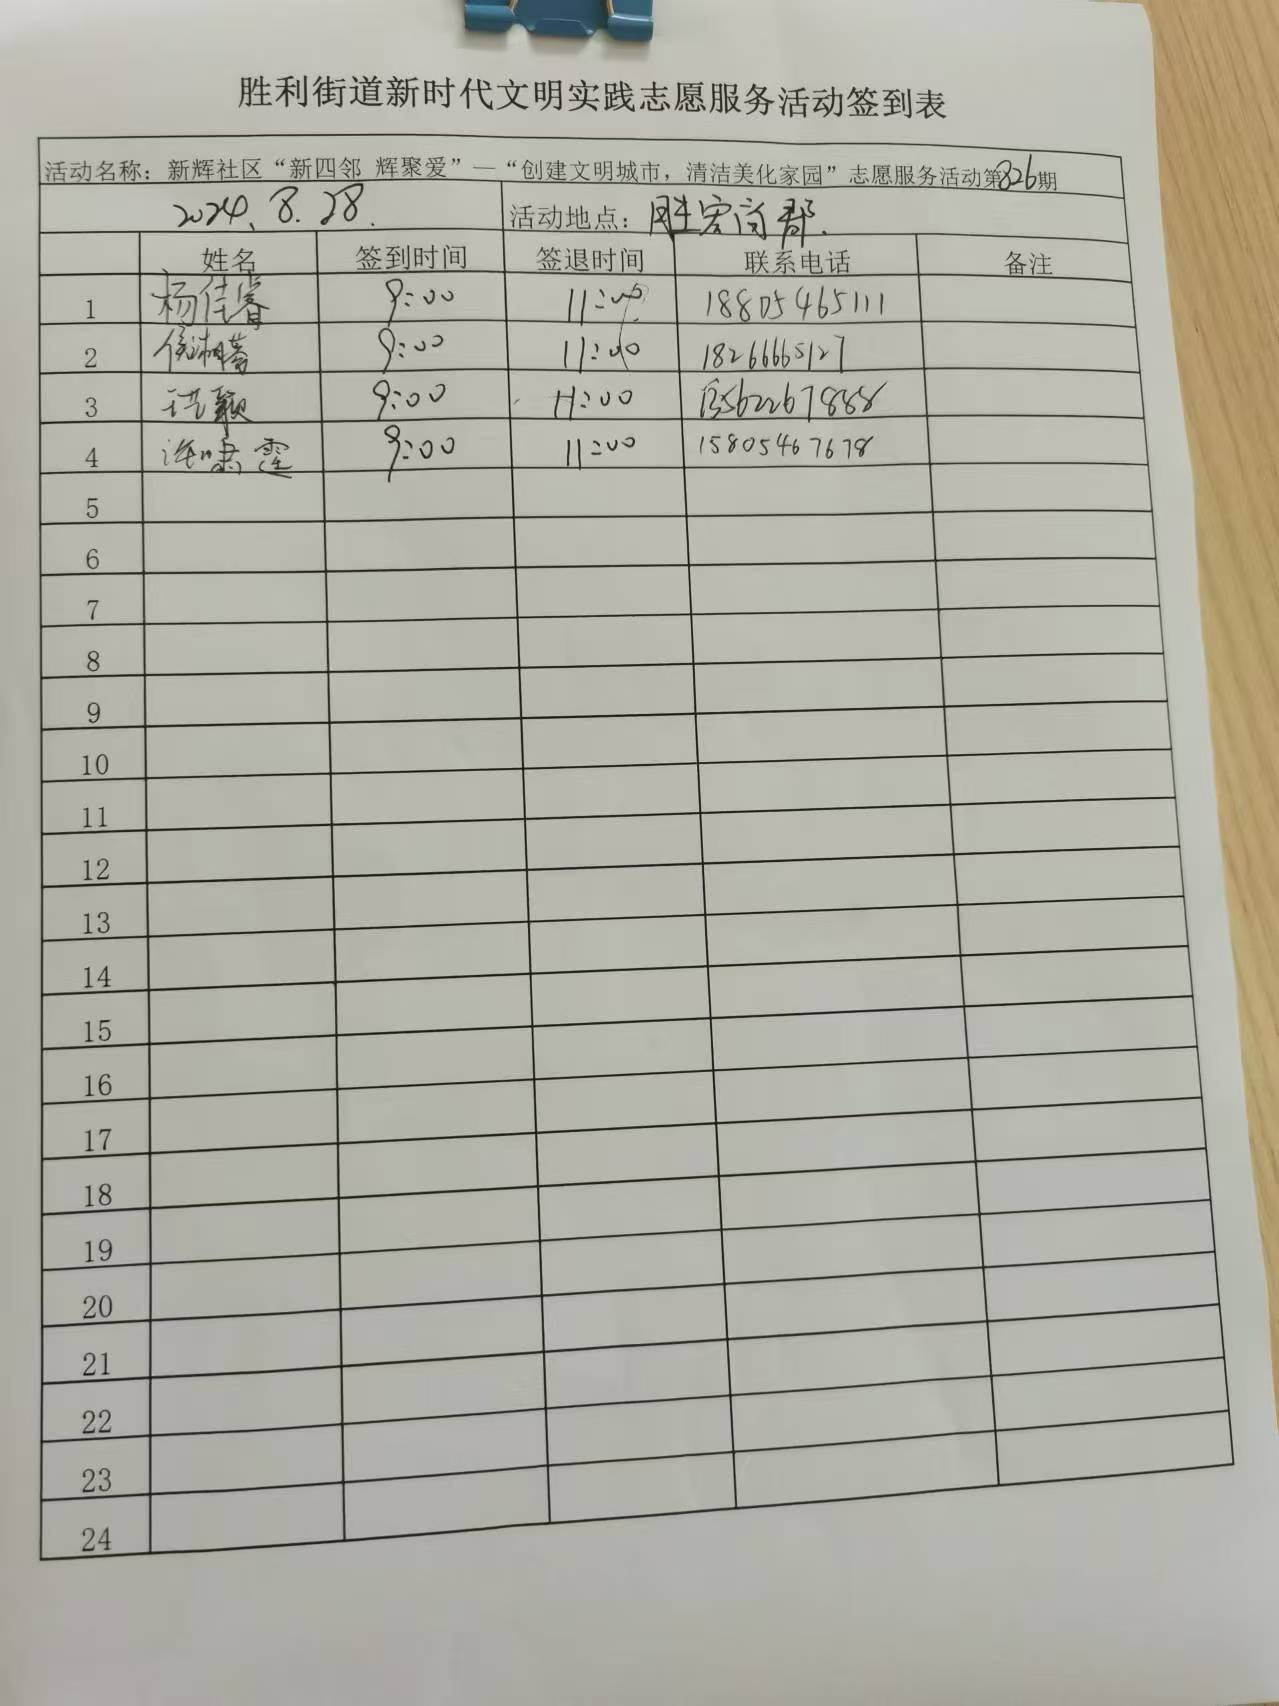 胜利街道新时代文明实践志愿服务活动签到表
活动名称：新辉社区“新四邻 辉聚爱”—“创建文明城市，清洁美化家园”志愿服务活动第826期
2024.8.28. 活动地点：胜宏商都.
姓名 签到时间 签退时间 联系电话 备注
1 杨佳睿 9:00 11:00 18805465111
2 9:00 11:00 18266665127
3 9:00 11:00 13562267888
4 许啸霆 9:00 11:00 15805467678
5
6
7
8
9
10
11
12
13
14
15
16
17
18
19
20
21
22
23
24